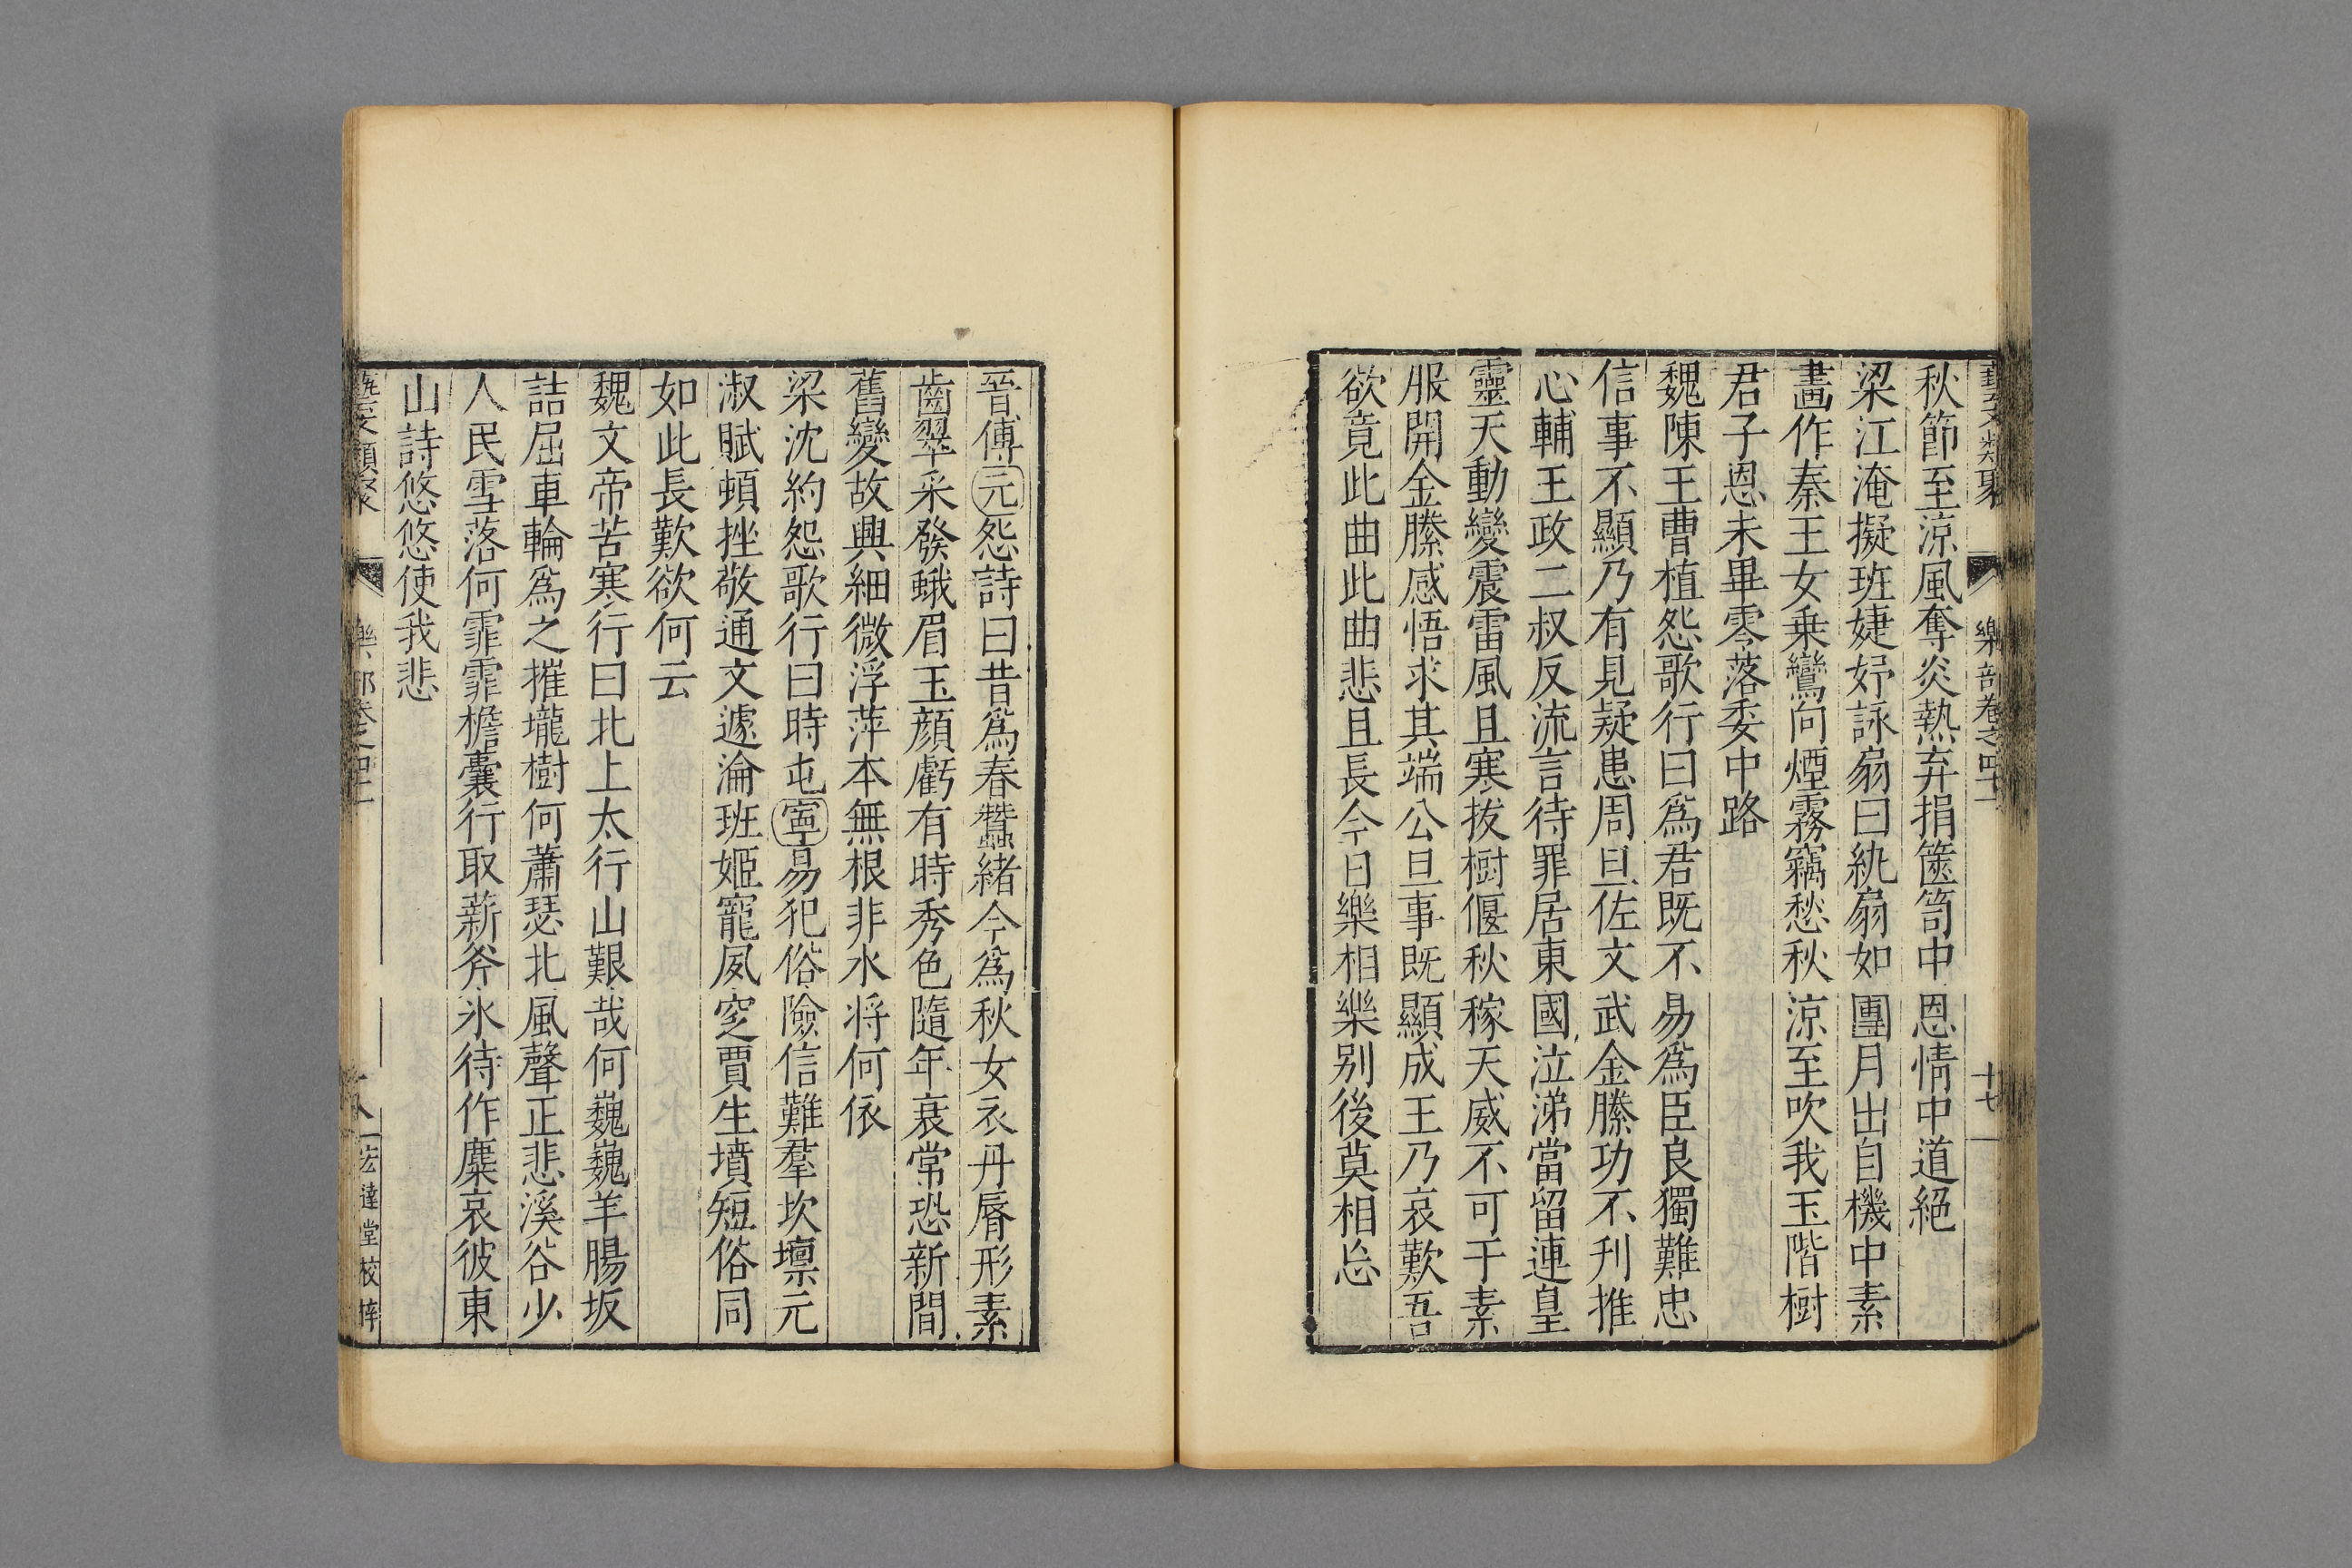 藝文類聚 樂部卷之四十一 十七
秋節至涼風奪炎熱弃捐篋笥中恩情中道絕
梁江淹擬班婕妤詠扇曰紈扇如團月出自機中素
畫作秦王女乗鸞向煙霧竊愁秋涼至吹我玉階樹
君子恩未畢零落委中路
魏陳王曹植怨歌行曰爲君既不易爲臣良獨難忠
信事不顯乃有見疑患周旦佐文武金縢功不刋推
心輔王政二叔反流言待罪居東國泣涕當留連皇
靈天動變震雷風且寒拔樹偃秋稼天威不可干素
服開金縢感悟求其端公旦事既顯成王乃哀歎吾
欲竟此曲此曲悲且長今日樂相樂别後莫相忘
晉傅元怨詩曰昔爲春蠶緒今爲秋女衣丹脣形素
齒翠采發蛾眉玉顏虧有時秀色隨年衰常恐新間
舊變故興細微浮萍本無根非水將何依
梁沈約怨歌行曰時屯寧易犯俗險信難羣坎壈元
淑賦頓挫敬通文遽淪班姬寵夙窆賈生墳短俗同
如此長歎欲何云
魏文帝苦寒行曰北上太行山艱哉何巍巍羊腸坂
詰屈車輪爲之摧壠樹何蕭瑟北風聲正悲溪谷少
人民雪落何霏霏檐囊行取薪斧氷待作糜哀彼東
山詩悠悠使我悲
藝文類聚 樂部卷之四十一 宏達堂校梓